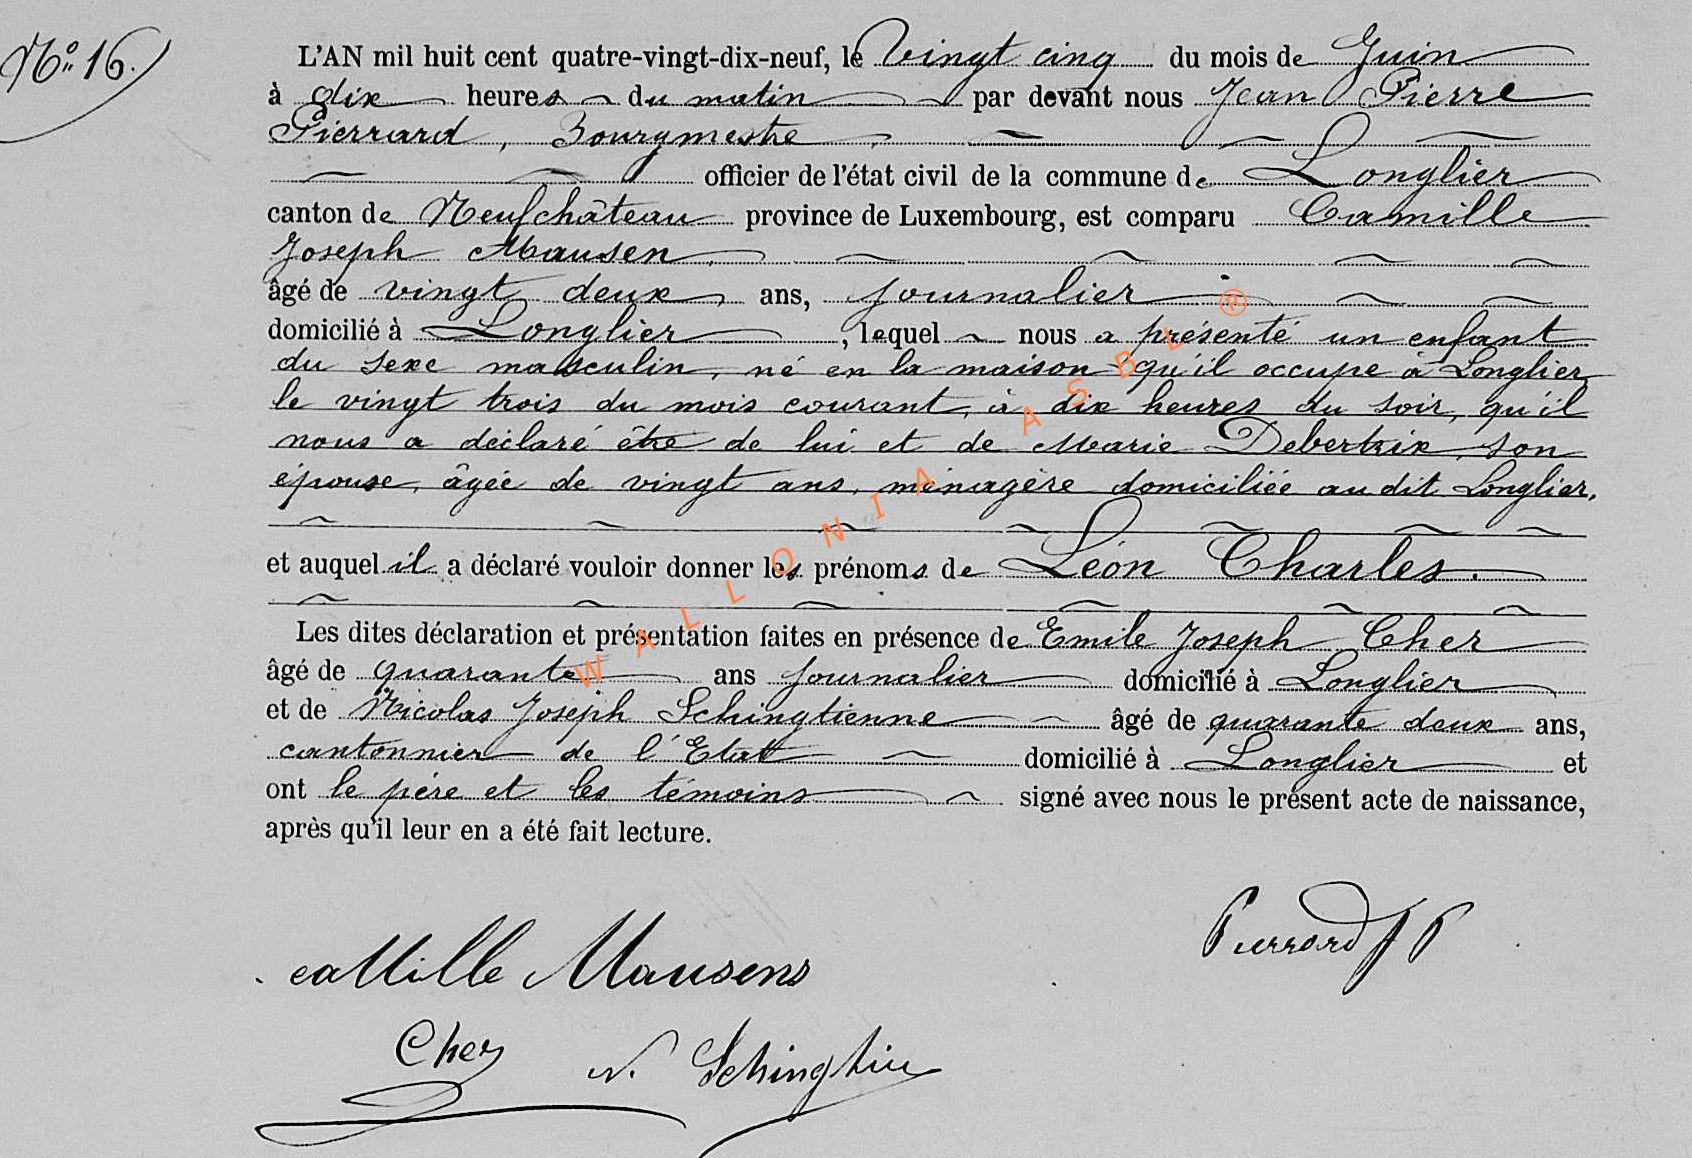 N° 16.
L'AN mil huit cent quatre-vingt-dix-neuf, le Vingt cinq du mois de Juin
à dix heures du matin par devant nous Jean Pierre
Pierrard, Bourgmestre
officier de l'état civil de la commune de Longlier
canton de Neufchâteau province de Luxembourg, est comparu Camille
Joseph Mausen,
âgé de vingt deux ans, journalier
domicilié à Longlier, lequel nous a présenté un enfant
du sexe masculin, né en la maison qu'il occupe à Longlier
le vingt trois du mois courant, à dix heures du soir, qu'il
nous a déclaré être de lui et de Marie Debertrix, son
épouse, âgée de vingt ans, ménagère domiciliée au dit Longlier.
et auquel il a déclaré vouloir donner les prénoms de Léon Charles.
Les dites déclaration et présentation faites en présence de Emile Joseph Cher
âgé de quarante ans journalier domicilié à Longlier
et de Nicolas Joseph Schingtienne âgé de quarante deux ans,
cantonnier de l'Etat domicilié à Longlier et
ont le père et les témoins signé avec nous le présent acte de naissance,
après qu'il leur en a été fait lecture.
Pierrard J P
caMille Mausens
Cher N. Schingtin
WALLONIA ASBL ®